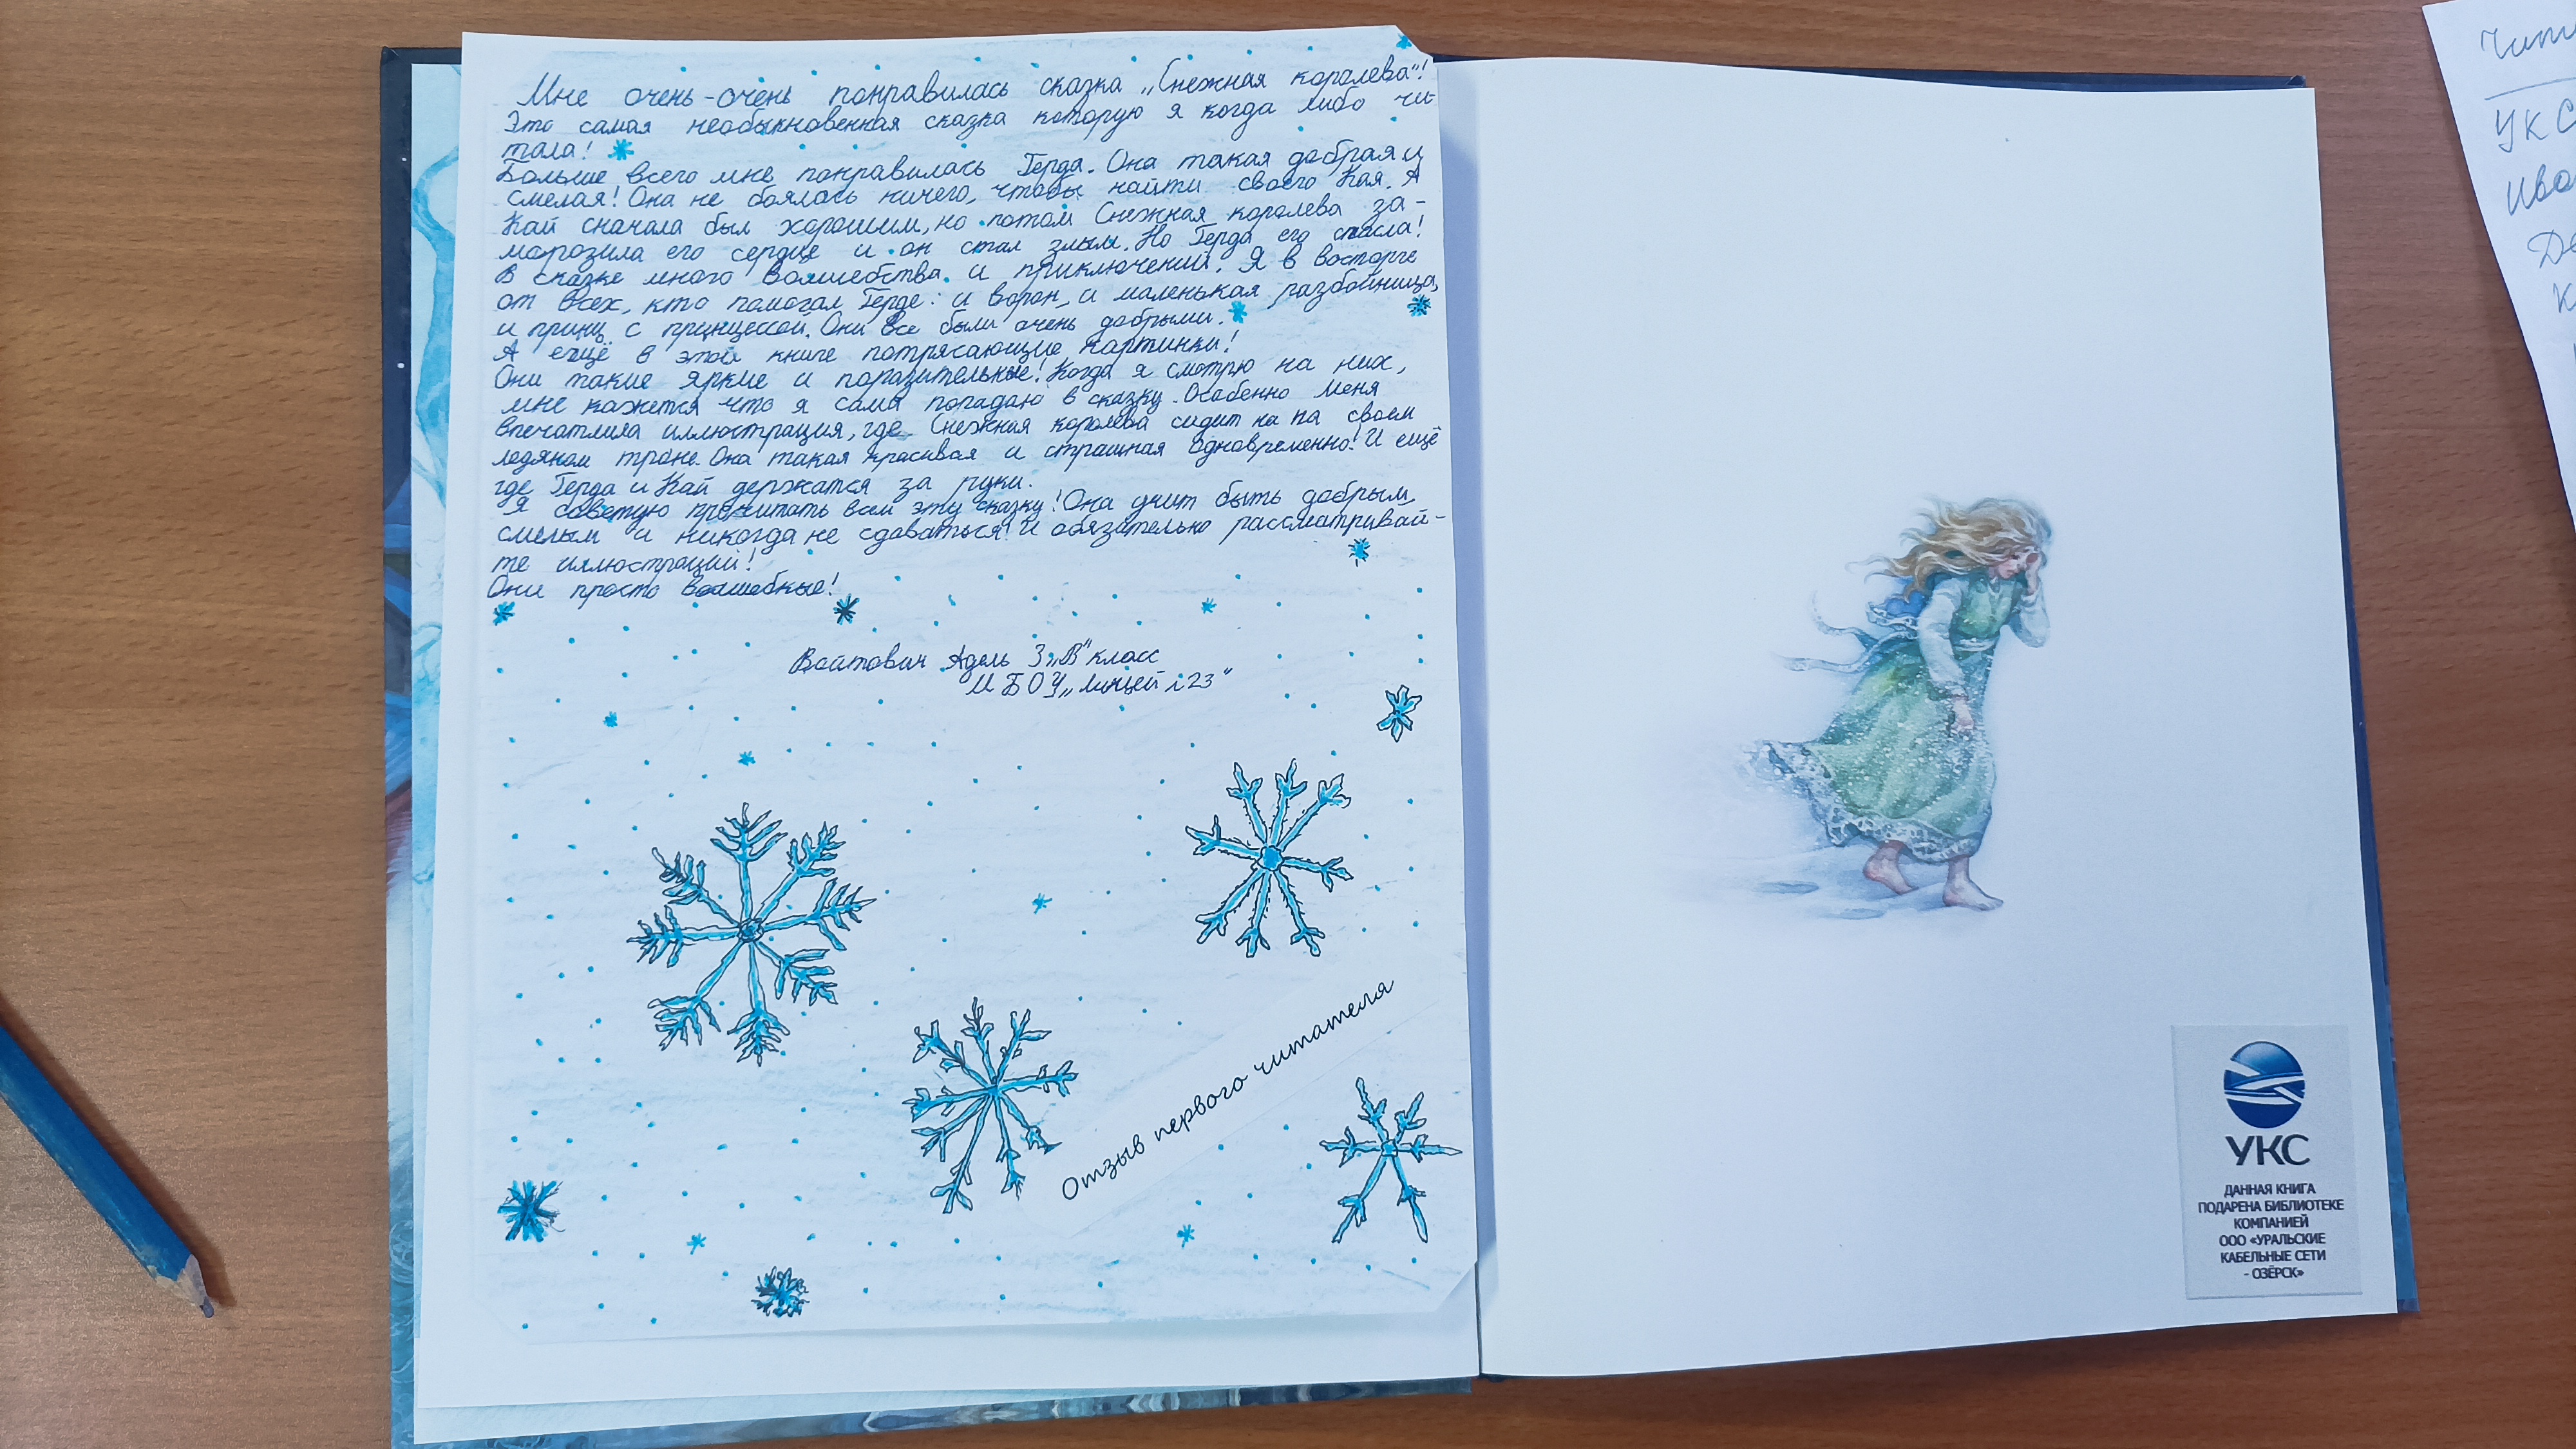 Мне очень-очень понравилась сказка „Снежная королева"!
Это самая необыкновенная сказка которую я когда либо чи-
тала!
Больше всего мне понравилась Герда. Она такая добрая и
смелая! Она не боялась ничего, чтобы найти своего Кая. А
Кай сначала был хорошим, но потом Снежная королева за-
морозила его сердце и он стал злым. Но Герда его спасла!
В сказке много волшебства и приключений. Я в восторге
от всех, кто помогал Герде: и ворон, и маленькая разбойница,
и принц с принцессой. Они все были очень добрыми.
А ещё в этой книге потрясающие картинки!
Они такие яркие и поразительные! Когда я смотрю на них,
мне кажется что я сама попадаю в сказку. Особенно меня
впечатлила иллюстрация, где Снежная королева сидит на на своем
ледяном троне. Она такая красивая и страшная одновременно! И ещё
где Герда и Кай держатся за руки.
Я советую прочитать вам эту сказку! Она учит быть добрым,
смелым и никогда не сдаваться! И обязательно рассматривай-
те иллюстраций!
Они просто волшебные!
Войтович Адель 3„В" класс
МБОУ „Лицей 23"
Отзыв первого читателя
УКС
ДАННАЯ КНИГА
ПОДАРЕНА БИБЛИОТЕКЕ
КОМПАНИЕЙ
ООО «УРАЛЬСКИЕ
КАБЕЛЬНЫЕ СЕТИ
- ОЗЁРСК»
УКС